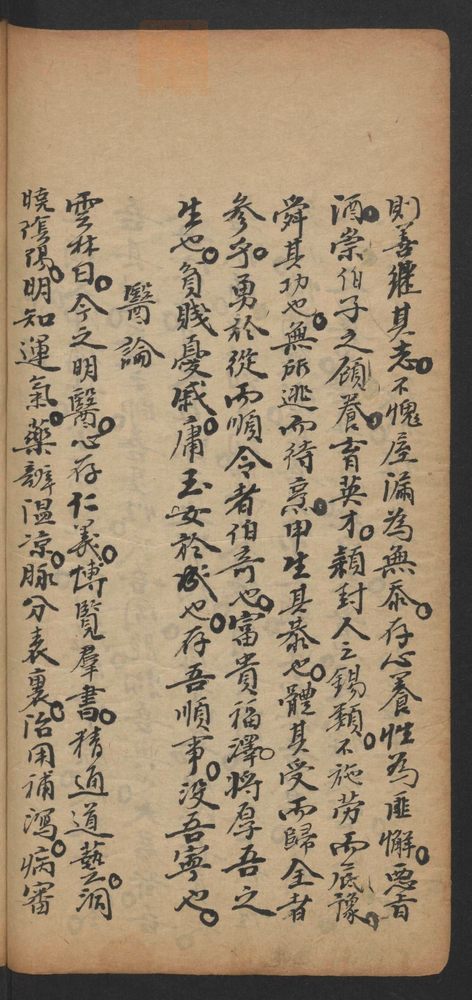 則善繼其志。不愧屋漏為無忝。存心養性為匪懈。惡旨
酒。崇伯子之顧養。育英才。穎封人之錫類。不施勞而底豫。
舜其功也。無所逃而待烹。申生其恭也。體其受而歸全者
參乎。勇於從而順令者伯奇也。富貴福澤。將厚吾之
生也。貧賤憂戚。庸玉女於成也。存吾順事。沒吾寧也。
醫論
雲林曰。今之明醫。心存仁義。博覽羣書。精通道藝。洞
曉陰陽。明知運氣。藥辨温凉。脉分表裏。治用補瀉。病審